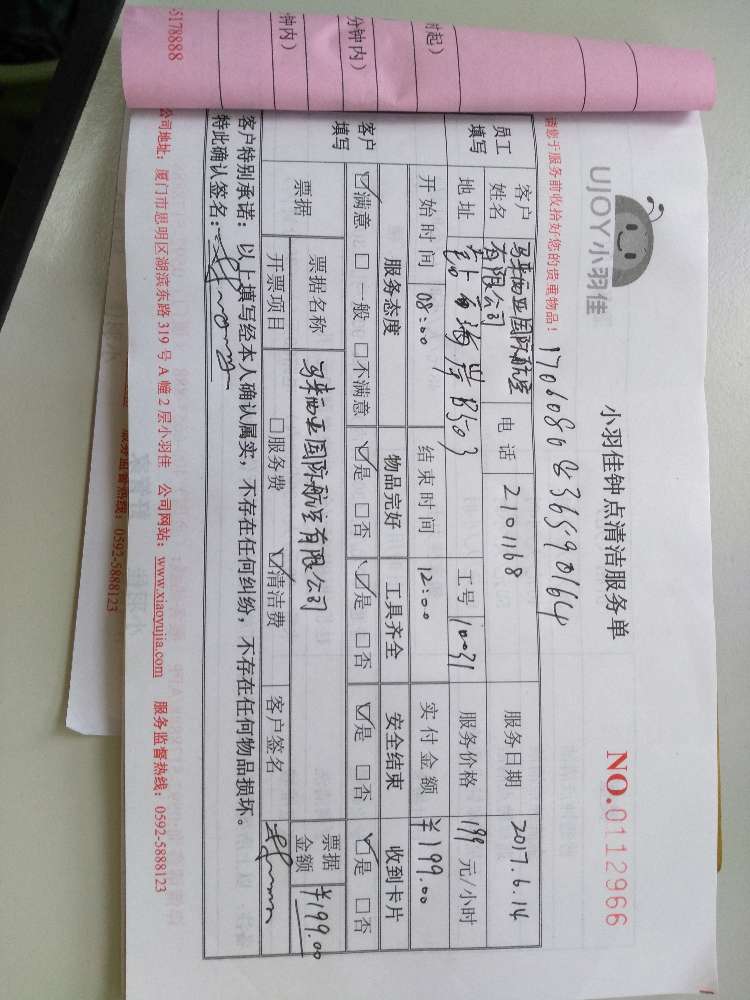 UJOY小羽佳
小羽佳钟点清洁服务单
NO.0112966
请您于服务前收拾好您的贵重物品！
员工填写
客户姓名 马来西亚国际航空有限公司 电话 2101168 服务日期 2017.6.14
地址 B503 工号 10031 服务价格 199 元/小时
开始时间 08:00 结束时间 12:00 实付金额 ¥199.00
客户填写
服务态度 物品完好 工具齐全 安全结束 收到卡片
☑满意 □一般 □不满意 ☑是 □否 ☑是 □否 ☑是 □否 ☑是 □否
票据 票据名称 马来西亚国际航空有限公司 票据金额 ¥199.00
开票项目 □服务费 ☑清洁费 客户签名
客户特别承诺：以上填写经本人确认属实，不存在任何纠纷，不存在任何物品损坏。
特此确认签名：
公司地址：厦门市思明区湖滨东路 319 号 A 幢 2 层小羽佳 公司网站：www.xiaoyujia.com 服务监督热线：0592-5888123
服务监督热线：0592-5888123
5178888
时起）
分钟内）
钟内）